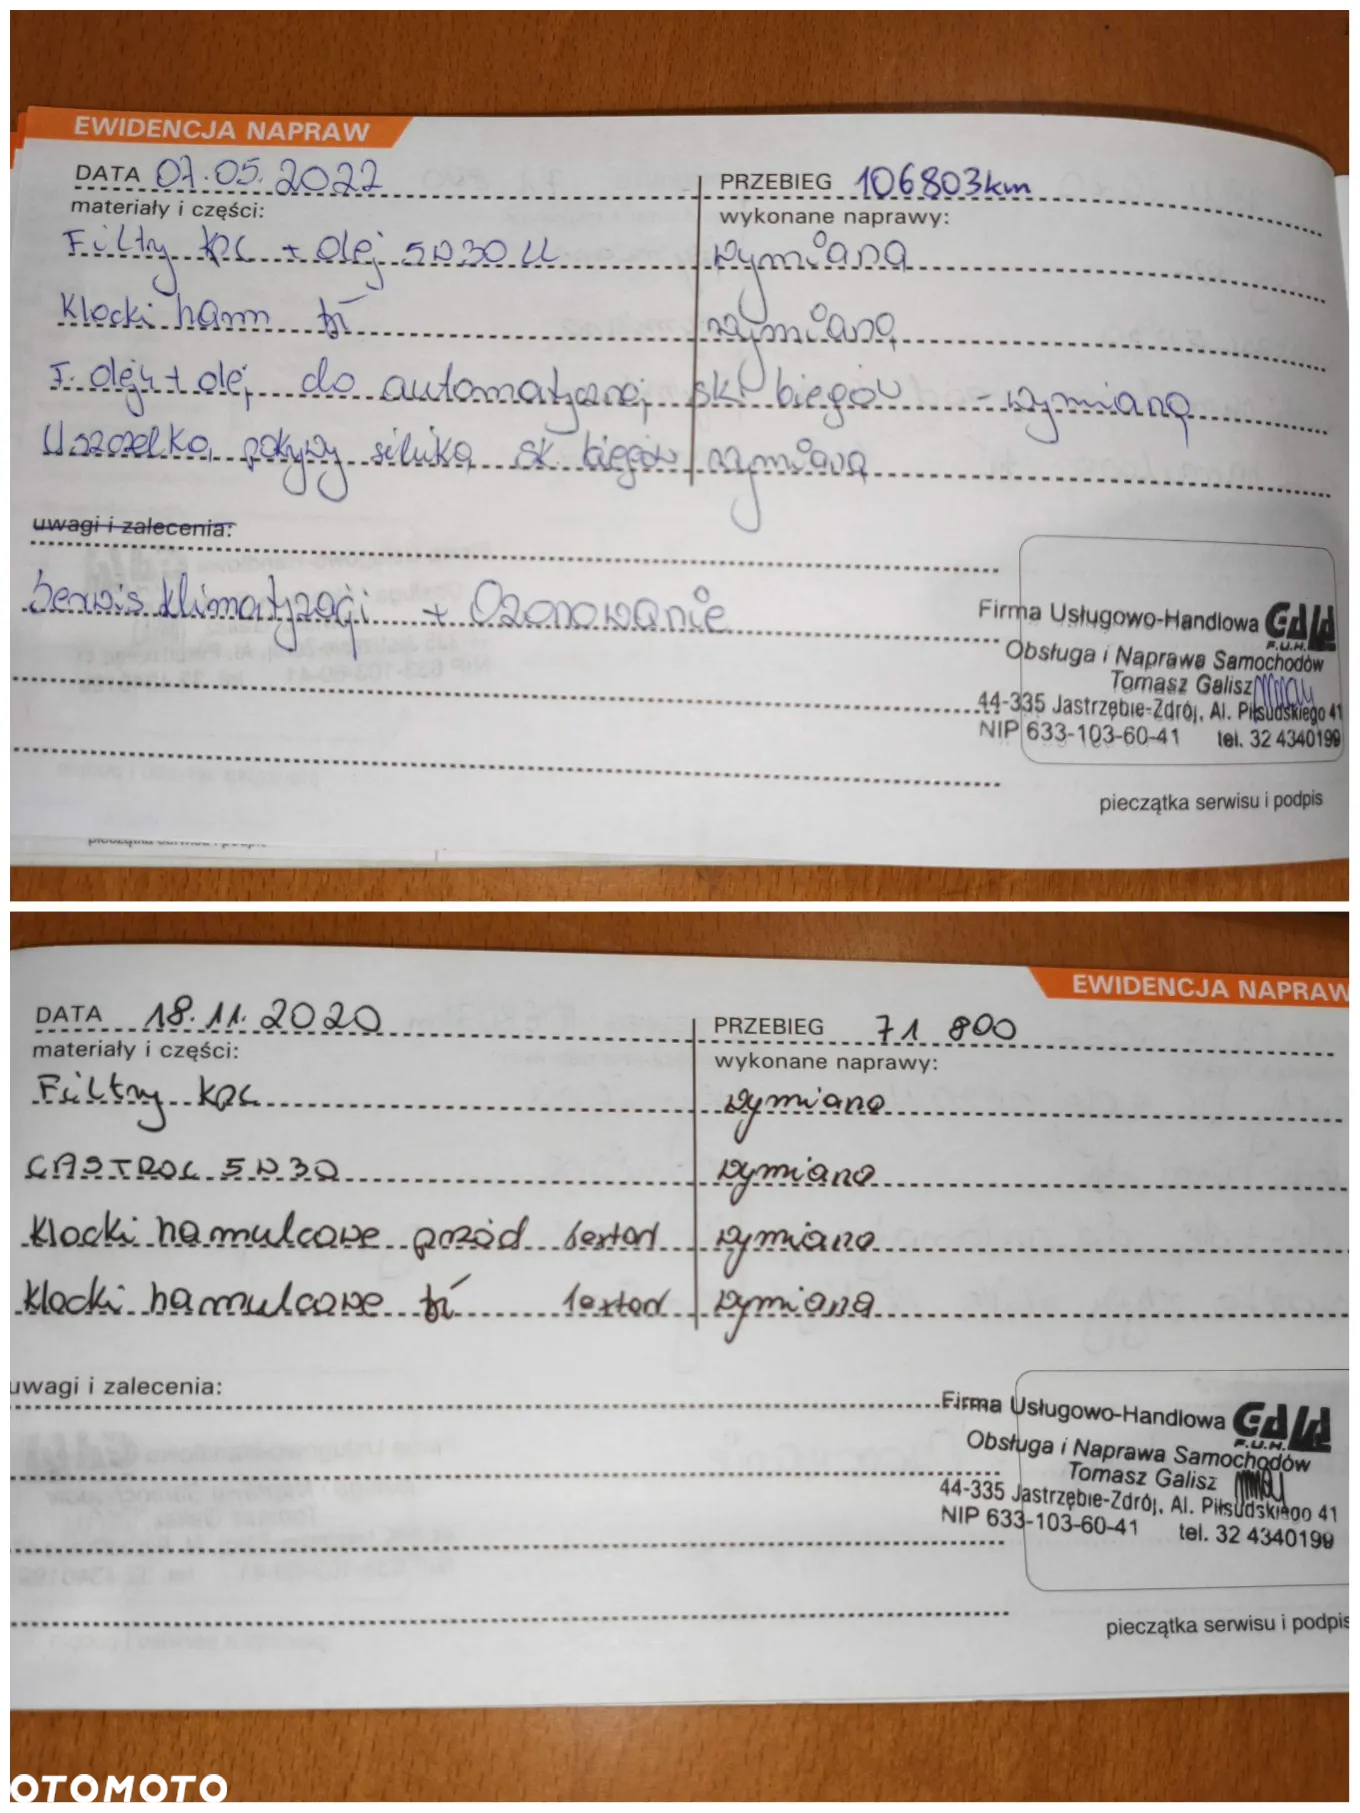 EWIDENCJA NAPRAW
DATA 07.05.2022 PRZEBIEG 106803km
materiały i części: wykonane naprawy:
Filtry kpl + olej 5W30 LL wymiana
Klocki ham tył wymiana
F. oleju + olej do automatycznej sk. biegów - wymiana
Uszczelka pokrywy silnika sk. biegów wymiana
uwagi i zalecenia:
Serwis klimatyzacji + Ozonowanie
Firma Usługowo-Handlowa GALA
F.U.H.
Obsługa i Naprawa Samochodów
Tomasz Galisz
44-335 Jastrzębie-Zdrój, Al. Piłsudskiego 41
NIP 633-103-60-41 tel. 32 4340199
pieczątka serwisu i podpis
pieczątka serwisu i podpis
EWIDENCJA NAPRAW
DATA 18.11.2020 PRZEBIEG 71 800
materiały i części: wykonane naprawy:
Filtry kpl wymiana
CASTROL 5W30 wymiana
Klocki hamulcowe przód textar wymiana
Klocki hamulcowe tył textar wymiana
uwagi i zalecenia:
Firma Usługowo-Handlowa GALA
F.U.H.
Obsługa i Naprawa Samochodów
Tomasz Galisz
44-335 Jastrzębie-Zdrój, Al. Piłsudskiego 41
NIP 633-103-60-41 tel. 32 4340199
pieczątka serwisu i podpis
OTOMOTO